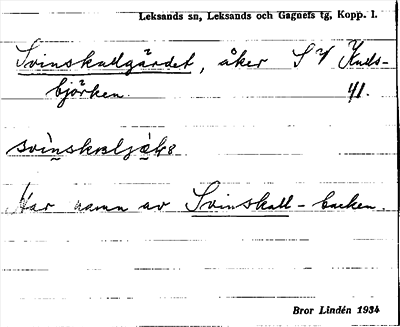 Leksands sn, Leksands och Gagnefs tg, Kopp. l.
Svinskallgärdet, åker S V Knuts-
björken. 41.
Har namn av Svinskall-backen.
Bror Lindén 1934